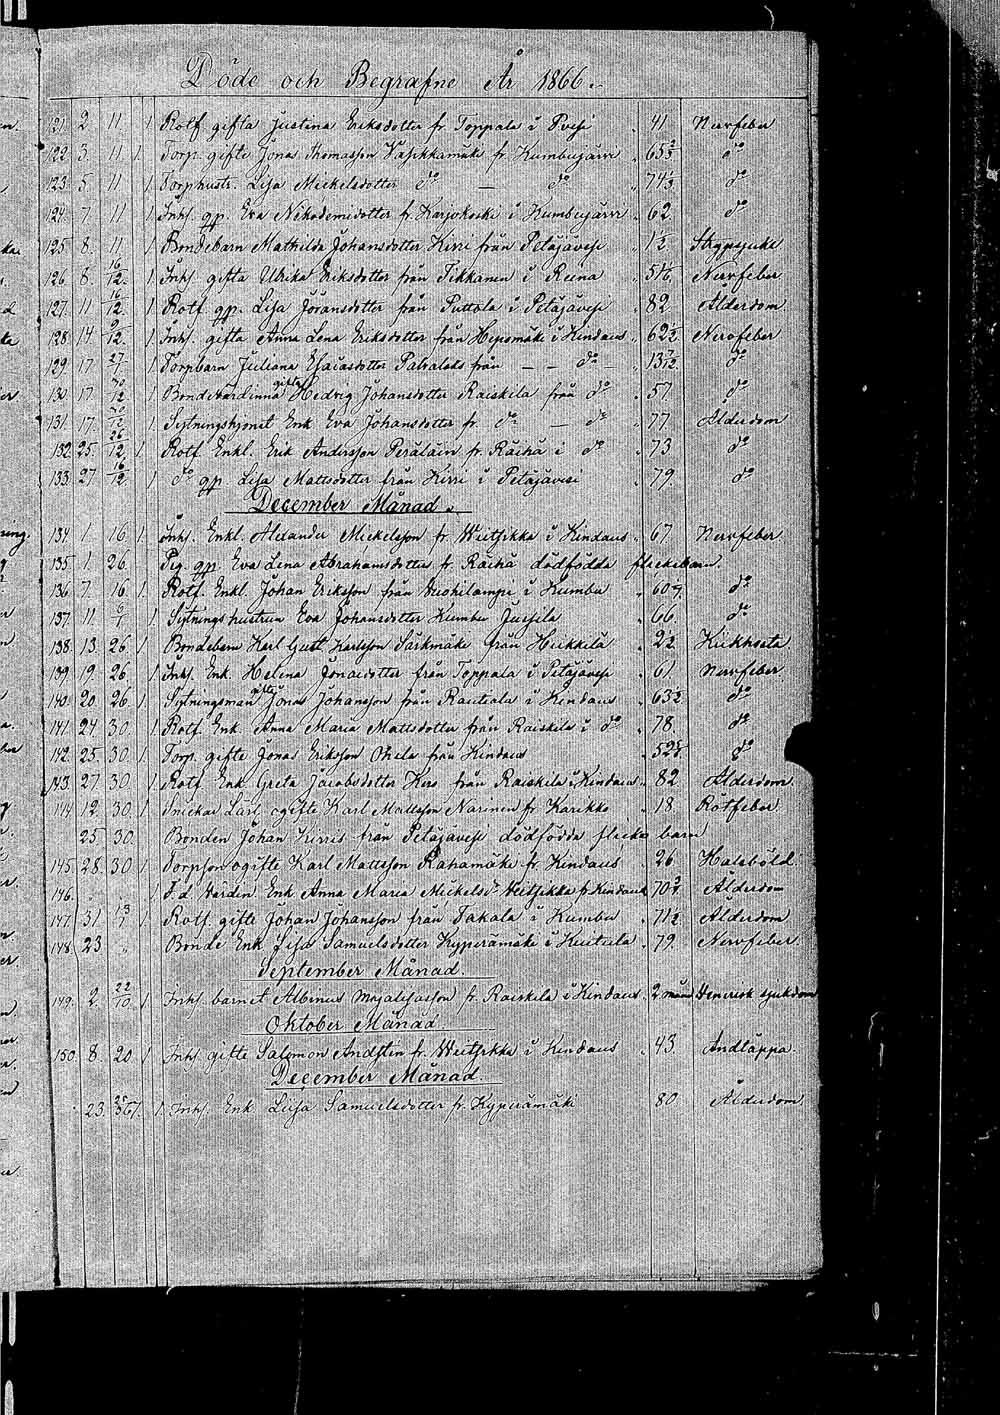 Döde och Begrafne År 1866.
121. 2. 11. /. Rotf. gifta Justina Eriksdotter fr. Toppala i Pvesi " 41. Nervfeber
122. 3. 11. /. Torp. gifte Jonas Thomasson Vasikkamäki fr. Kumbujärvi " 65 2/3 do
123. 5. 11 /. Torphustr. Lisa Mickelsdotter do — do " 74 1/3 do
124. 7. 11 /. Inhs. gp. Eva Nikodemidotter fr. Karjokoski i Kumbujärvi " 62. do
125. 8. 11 /. Bondebarn Mathilda Johansdotter Kirri från Petäjävesi " 1 1/2 Strypsjuka
126. 8. 16/12. /. Inhs. gifta Ulrika Eriksdotter från Tikkanen i Runa " Nervfeber
127. 11 16/12. /. Rotf. gp. Lisa Joransdotter från Puttola i Petäjävesi " 82. Ålderdom
128. 14. 9/12. /. Inhs. gifta Anna Lena Eriksdotter från i Kindaus " 62 1/2 Nervfeber
129. 17. 27/ /. Torpbarn Juliana Esaiasdotter från — — do — " 13 7/12. do
130. 17. /12. /. Bondevärdinna gifta Hedvig Johansdotter Raiskila från do " 57. do
131. 17. /12 /. Sytningshjonet Enk Eva Johansdotter fr. do — do " 77. Ålderdom
132. 25. 26/12 /. Rotf. Enkl. Erik Andersson Peräläin fr. Räihä i do " 73 do
133. 27 16/12. / do gp Lisa Mattsdotter från Kirri i Petäjävesi " 79. do
December Månad.
134. 1. 16. /. Inhs. Enkl. Alexander Mickelsson fr. Weitsikka i Kindaus " 67. Nervfeber
135. 1. 26. Pig. gp. Eva Lena Abrahamsdotter fr. Räihä dödfödda flickebarn.
136. 7. 16. /. Rotf. Enkl. Johan Eriksson från i Kumbu " 60 do
137. 11. 6/1 /. Sytningshustrun Eva Johansdotter Kumbu Jussila " 66. do
138. 13. 26. /. Bondebarn Karl Gust. Karlsson Särkmäki från Heikkilä " 2 1/2 Kikhosta
139. 19. 26. /. Inhs. Enk. Helena Jonaedotter från Toppala i Petäjävesi " 61. Nervfeber
140. 20. 26. /. Sytningsman gifte Jonas Johansson från Rautiala i Kindaus " 63 do
141. 24. 30. /. Rotf. Enk Anna Maria Mattsdotter från Raiskila i do " 78. do
142. 25. 30. /. Torp. gifte Jonas Eriksson från Kindaus " 52 do
143. 27. 30. /. Rotf. Enk. Greta Jacobsdotter från Raiskila i Kindaus " 82. Ålderdom.
144. 12. 30. /. Snickar Lärl. ogifte Karl Mattsson Narinen fr. Karikko " 18. Rötfeber
25. 30. Bonden Johan Kirris från Petäjävesi dödfödda flicke barn
145. 28. 30. /. Torpson ogifte Karl Mattsson Rahamäki fr. Kindaus " 26. Halsböld
146. " " / F.d. Värden Enk Anna Maria Mickelsd. Weitsikka fr Kindaus 70 3/4. Ålderdom
147. 31. 13/1. /. Rotf. gifte Johan Johansson från Takala i Kumbu " 71 1/2 Ålderdom
148. 23. " Bonde Enk Lisa Samuelsdotter Kyperämäki i Kuitula " 79. Nervfeber.
September Månad.
149. 2. 22/10. /. Inhs. barnet Albinus Majaliasson fr. Raiskila i Kindaus 2 mån Venerisk sjukdom
Oktober Månad.
150. 8. 20. /. Inhs. gifte Salomon Andstin fr. Weitsikka i Kindaus " 43. Andtäppa.
December Månad.
23. 25/3 67. /. Inhs. Enk Lisa Samuelsdotter fr. Kyperämäki 80. Ålderdom.